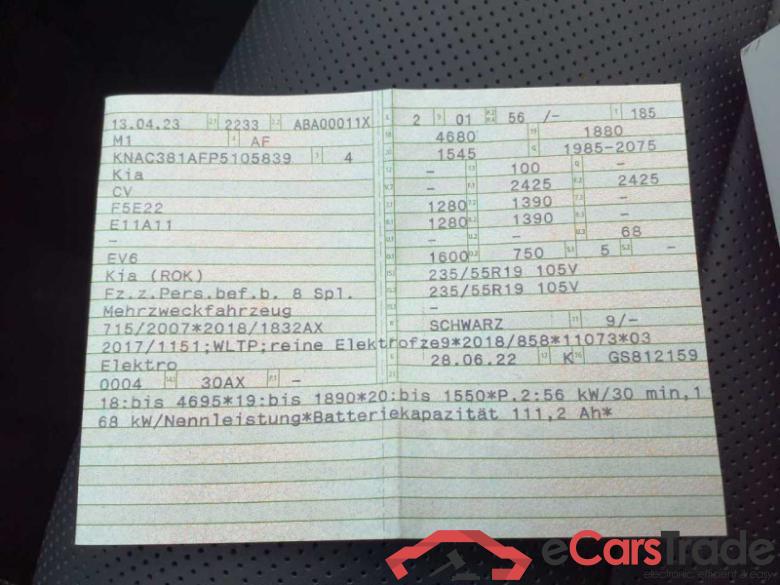 13.04.23 2233 ABA00011X
M1 AF
KNAC381AFP5105839 4
Kia
CV
F5E22
E11A11
–
EV6
Kia (ROK)
Fz.z.Pers.bef.b. 8 Spl.
Mehrzweckfahrzeug
715/2007*2018/1832AX
2017/1151;WLTP;reine Elektrofze9*2018/858*11073*03
Elektro
0004 30AX –
2 01 56 /– 185
4680 1880
1545 1985-2075
– 100 –
– 2425 2425
1280 1390 –
1280 1390 –
– – 68
1600 750 5 –
235/55R19 105V
235/55R19 105V
–
SCHWARZ 9/–
28.06.22 K GS812159
18:bis 4695*19:bis 1890*20:bis 1550*P.2:56 kW/30 min,1
68 kW/Nennleistung*Batteriekapazität 111,2 Ah*
eCarsTrade
electronic, efficient & easy